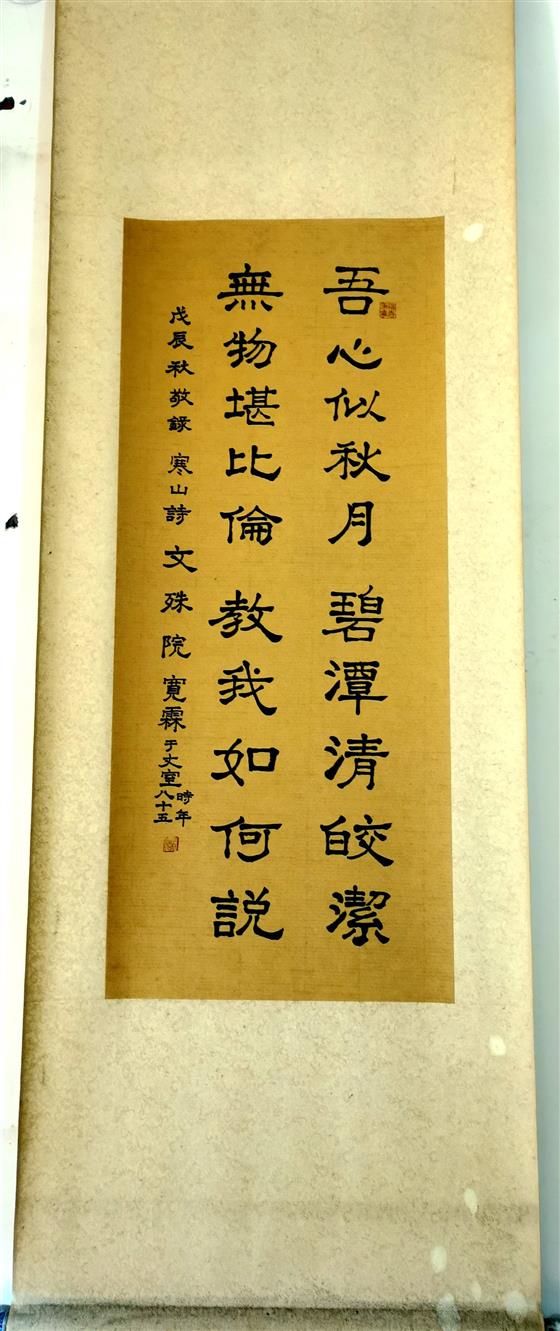 吾心似秋月碧潭清皎潔
無物堪比倫教我如何說
戊辰秋敬録寒山詩文殊院寬霖于丈室時年八十五